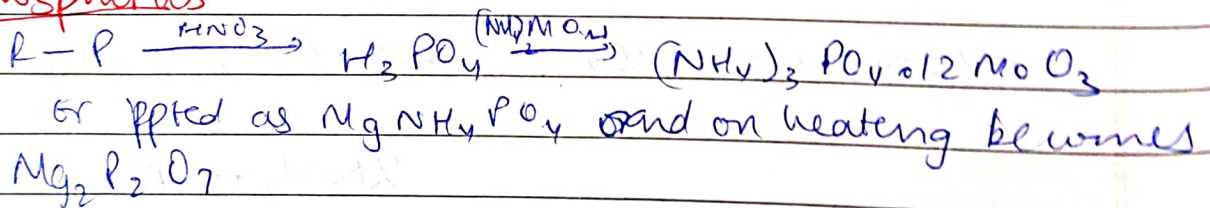 R-P HNO3→ H3PO4 (NH4)2MoO4→ (NH4)3 PO4 . 12 MoO3
or ppted as MgNH4PO4 and on heating becomes
Mg2P2O7